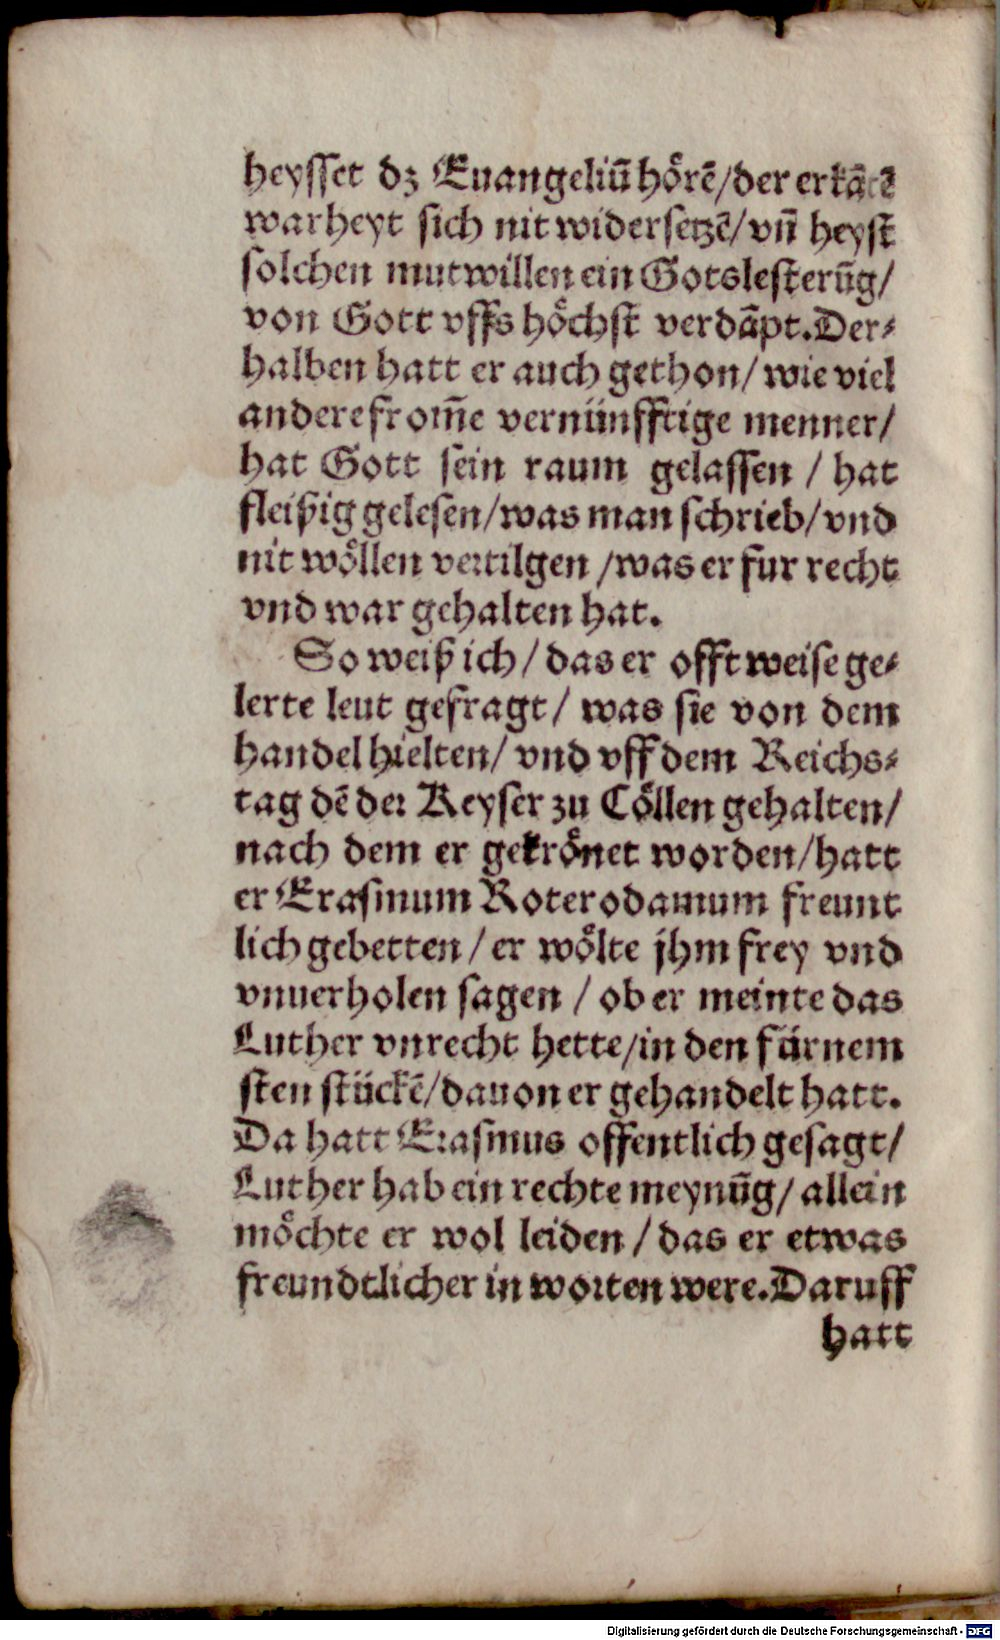 heysset dz Euangeliū hörē/der erkātē
warheyt sich nit widersetzē/vñ heyst
solchen mutwillen ein Gotslesterūg/
von Gott vffs höchst verdāpt. Der⸗
halben hatt er auch gethon/ wie viel
andere from̄e vernünfftige menner/
hat Gott sein raum gelassen / hat
fleißig gelesen/was man schrieb/vnd
nit wöllen vertilgen /was er fur recht
vnd war gehalten hat.
So weiß ich/ das er offt weise ge⸗
lerte leut gefragt/ was sie von dem
handel hielten/ vnd vff dem Reichs⸗
tag dē der Keyser zu Cöllen gehalten/
nach dem er gekrönet worden/hatt
er Erasmum Roterodamum freunt
lich gebetten/ er wölte jhm frey vnd
vnuerholen sagen / ob er meinte das
Luther vnrecht hette/in den fürnem
sten stückē/dauon er gehandelt hatt.
Da hatt Erasmus offentlich gesagt/
Luther hab ein rechte meynūg/ allein
möchte er wol leiden / das er etwas
freundtlicher in worten were. Daruff
hatt
Digitalisierung gefördert durch die Deutsche Forschungsgemeinschaft - DFG